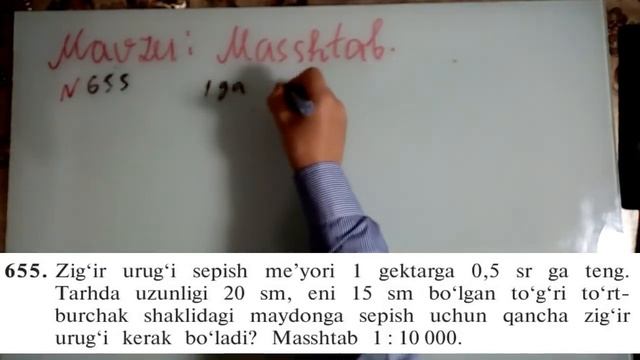 Mavzu: Masshtab.
N 655 1 ga
655. Zig‘ir urug‘i sepish me’yori 1 gektarga 0,5 sr ga teng.
Tarhda uzunligi 20 sm, eni 15 sm bo‘lgan to‘g‘ri to‘rt-
burchak shaklidagi maydonga sepish uchun qancha zig‘ir
urug‘i kerak bo‘ladi? Masshtab 1 : 10 000.